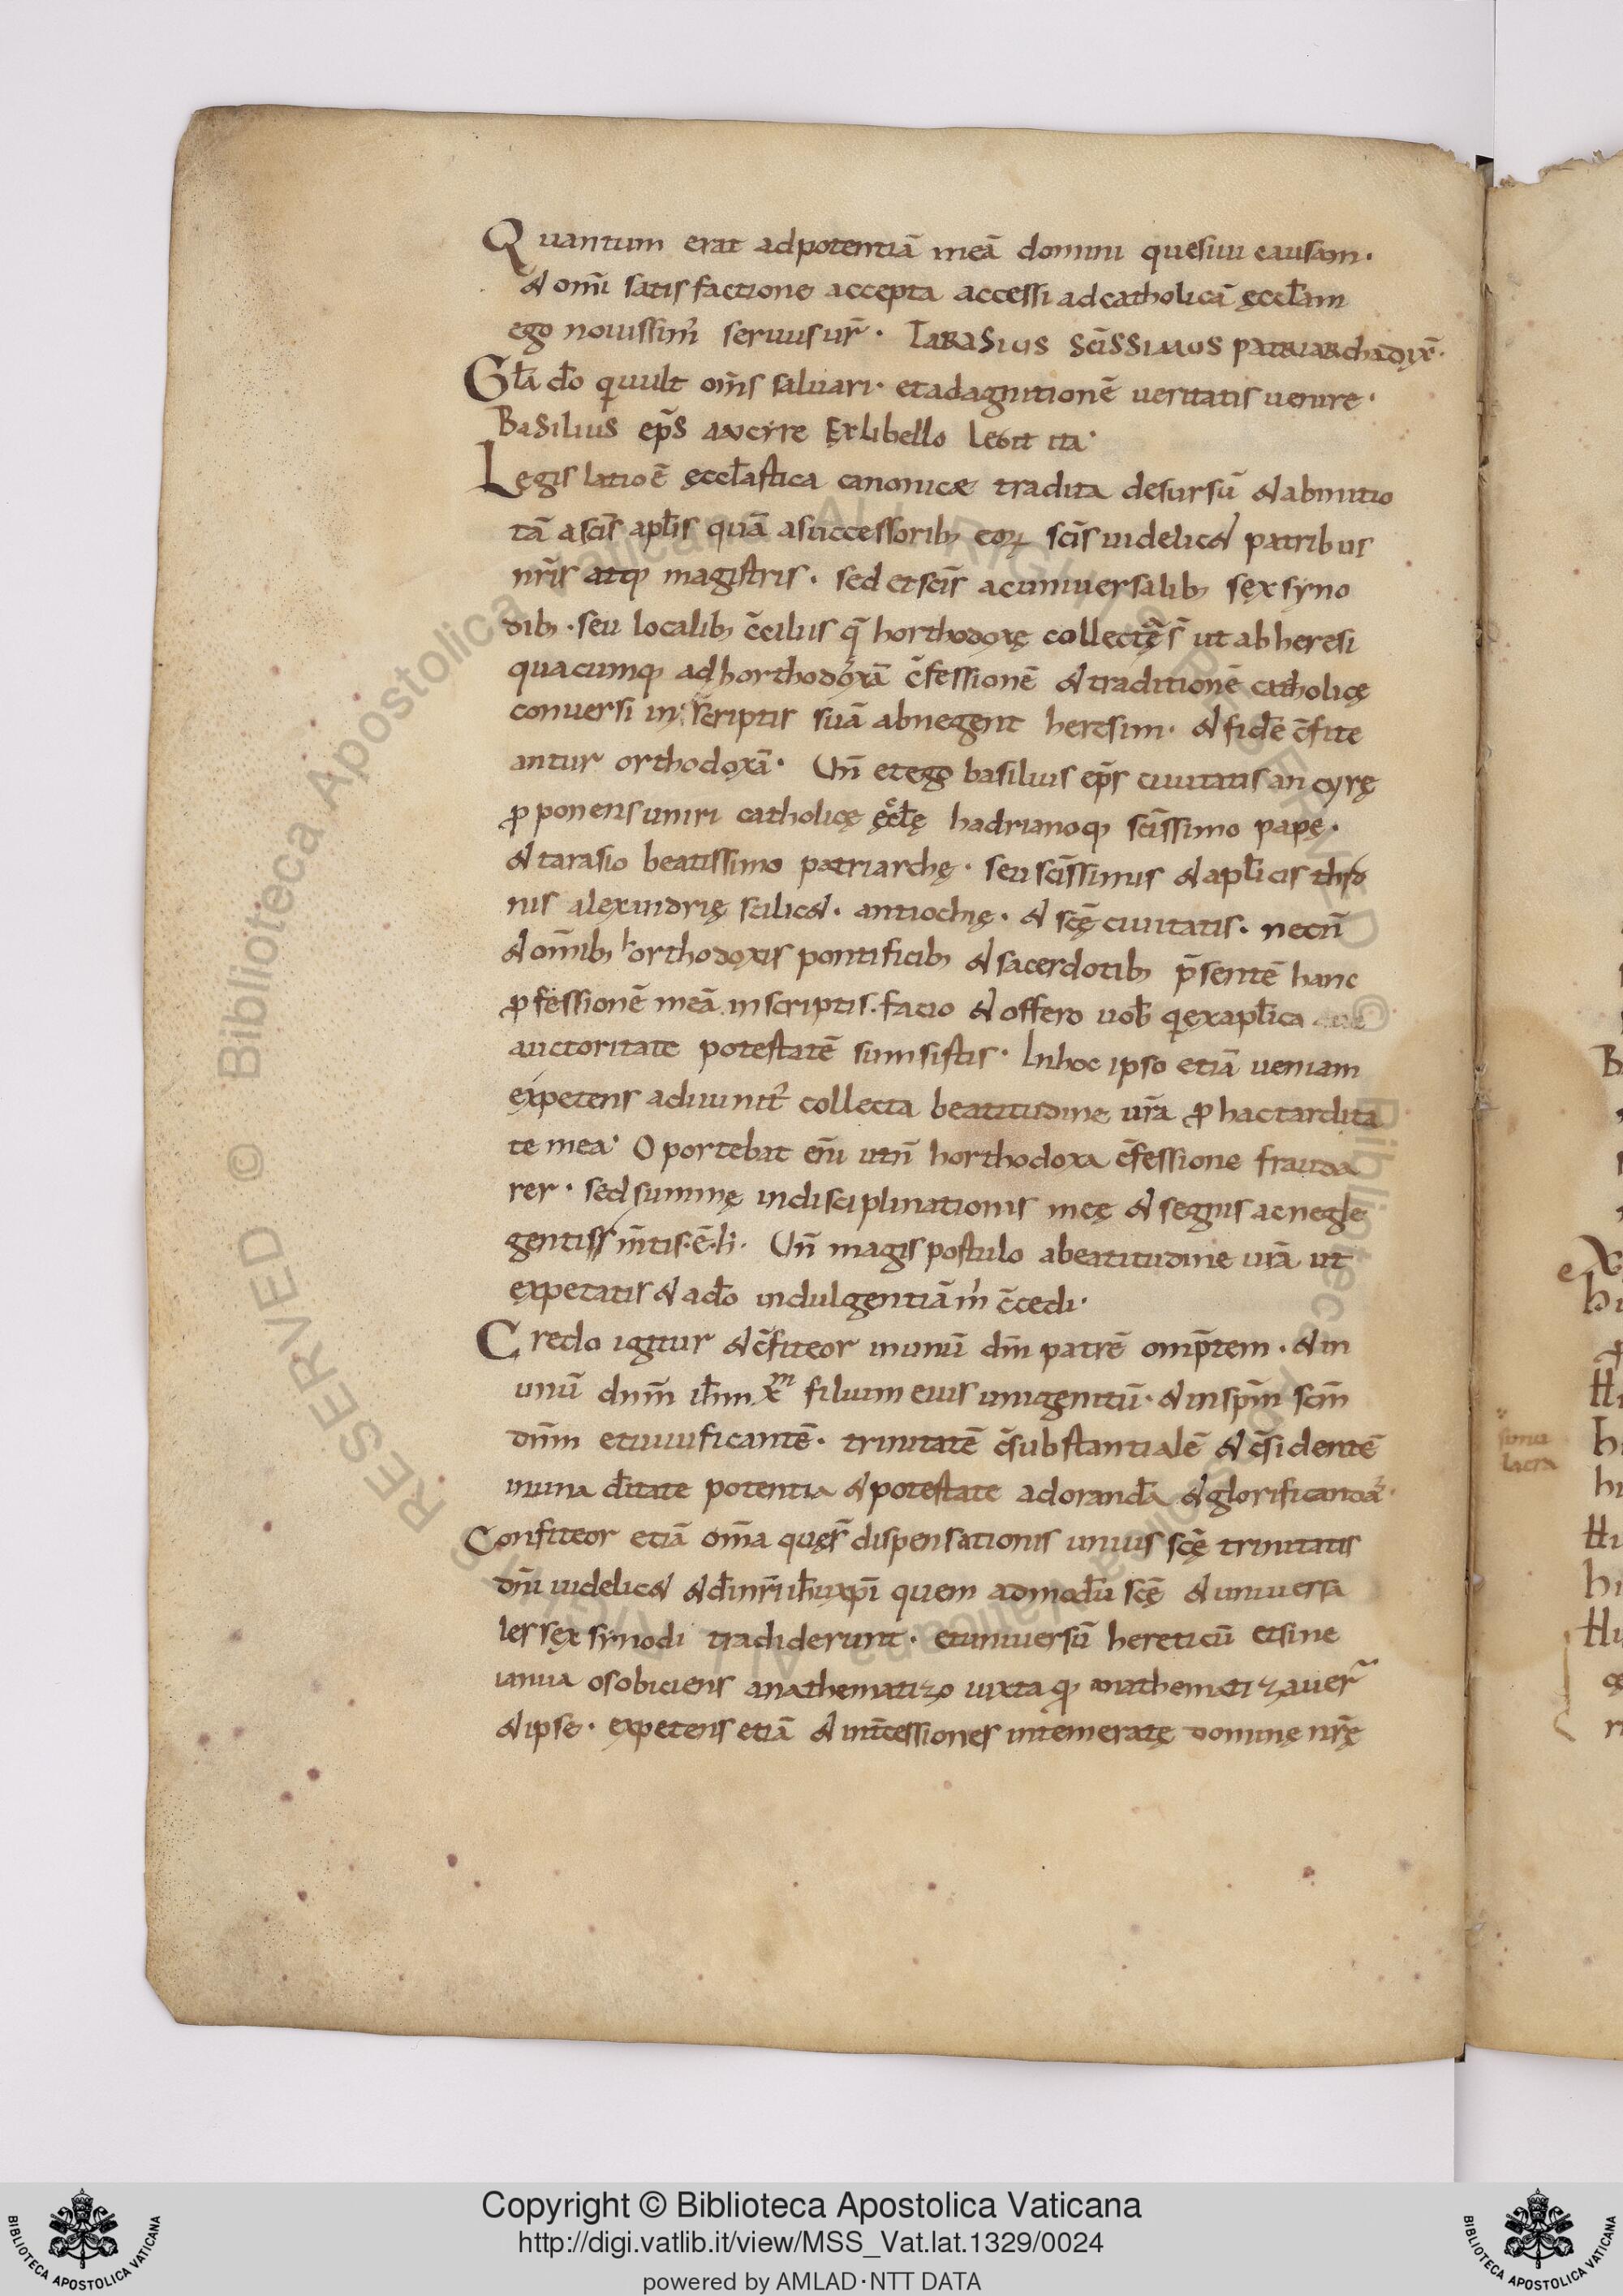 Quantum erat ad potentiā meā domini quesiui causam.
& om̄i satisfactione accepta accessi ad catholicā ęccl̄am
ego nouissim' seruus ur̄. Tarasius sc̄issimus patriarcha dix̄.
Gl̄a do qui uult om̄s saluari. et ad agnitionē ueritatis uenire.
Basilius ep̄s ancyre ex libello legit ita.
Legislatio ē ęccl̄astica canonicę tradita desursū & ab initio
tā a sc̄is apl̄is quā a successorib; eoꝝ sc̄is uidelic& patribus
nr̄is atq; magistris. sed et sc̄is ac uniuersalib; sex syno
dib;. seu localib; c̄ciliis q̄ horthodoxę collectę s̄ ut ab heresi
quacumq; ad horthodoxā c̄fessionē & traditionē catholicę
conuersi in scriptis suā abnegent heresim. & fidē c̄fite
antur orthodoxā. Un̄ et ego basilius ep̄s ciuitatis ancyrę
ꝓponens uniri catholicę ęccl̄ę hadrianoq; sc̄issimo papę.
& tarasio beatissimo patriarchę. seu sc̄issimis & apl̄icis thro
nis alexandrię scilic&. antiochię. & sc̄ę ciuitatis. necn̄
& om̄ib; horthodoxis pontificib; & sacerdotib; p̄sentē hanc
ꝓfessionē meā in scriptis. facio & offero uob̄ qui ex apl̄ica
auctoritate potestatē sumsistis. In hoc ipso etiā ueniam
expetens a diuinit' collecta beatitudine ur̄a ꝓ hac tardita
te mea. Oportebat eni ut n̄ horthodoxa c̄fessione frauda
rer. sed summę indisciplinationis meę & segnis ac negle
gentiss m̄tis. ē. h. Un̄ magis postulo a beatitudine ur̄a ut
expetatis & a do indulgentiā m̄ c̄cedi.
Credo igitur & c̄fiteor in unū dm̄ patrē omp̄tem. & in
unū dnm̄ ih̄m x̄m filium eius unigenitū. & in sp̄m sc̄m
dn̄m et uiuificantē. trinitatē c̄substantialē & c̄sidentē
in una d̄itate potentia & potestate adorandā & glorificandā.
Confiteor etiā om̄a quę s̄ dispensationis unius sc̄ę trinitatis
dn̄i uidelic& & dī nr̄i ih̄u xp̄i quem admodū sc̄ę & uniuersa
les sex synodi tradiderunt. et uniuersū hereticū et sine
ianua os obiciens anathematizo iuxta q; anathematizauer̄
& ipse. expetens etiā & int̄cessiones intemeratę dominę nr̄ę
Copyright © Biblioteca Apostolica Vaticana
http://digi.vatlib.it/view/MSS_Vat.lat.1329/0024
powered by AMLAD·NTT DATA